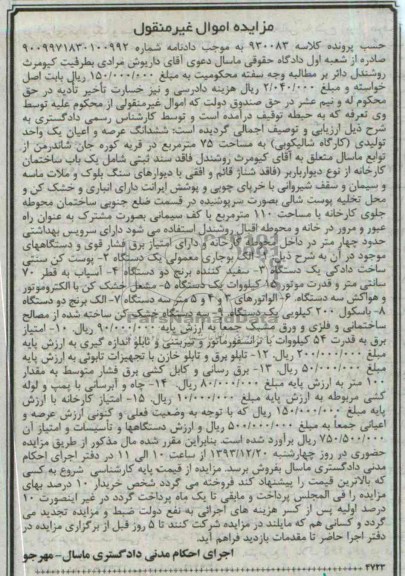 مزایده اموال غیرمنقول
حسب پرونده کلاسه ۹۳۰۰۸۳ به موجب دادنامه شماره ۹۰۰۹۹۷۱۸۳۰۱۰۰۹۹۲
صادره از شعبه اول دادگاه حقوقی ماسال دعوی آقای داریوش مرادی بطرفیت کیومرث
روشندل دائر بر مطالبه وجه سفته محکومیت به مبلغ ۱۵۰/۰۰۰/۰۰۰ ریال بابت اصل
خواسته و مبلغ ۲/۰۴۰/۰۰۰ ریال هزینه دادرسی و نیز خسارت تأخیر تأدیه در حق
محکوم له و نیم عشر در حق صندوق دولت که اموال غیرمنقولی از محکوم علیه توسط
وی تعرفه که به حیطه توقیف درآمده است و توسط کارشناس رسمی دادگستری به
شرح ذیل ارزیابی و توصیف اجمالی گردیده است: ششدانگ عرصه و اعیان یک واحد
تولیدی (کارگاه شالیکوبی) به مساحت ۷۵ مترمربع در قریه کوره جان شاندرمن از
توابع ماسال متعلق به آقای کیومرث روشندل فاقد سند ثبتی شامل یک باب ساختمان
کارخانه از نوع دیوارباربر (فاقد شناژ قائم و افقی با دیوارهای سنگ بلوک و ملات ماسه
و سیمان و سقف شیروانی با خرپای چوبی و پوشش ایرانت دارای انباری و خشک کن و
محل تخلیه پوست شالی بصورت سرپوشیده در قسمت ضلع جنوبی ساختمان محوطه
جلوی کارخانه با مساحت ۱۱۰ مترمربع با کف سیمانی بصورت مشترک به عنوان راه
عبور و مرور در خانه و محوطه اقبال روشندل استفاده می شود دارای سرویس بهداشتی
حدود چهار متر در داخل کارخانه و دارای امتیاز برق فشار قوی و دستگاههای
موجود در آن به شرح ذیل: ۱- الک بوجاری معمولی یک دستگاه ۲- پوست کن سنتی
ساخت دادکی یک دستگاه ۳- سفید کننده برنج دو دستگاه ۴- آسیاب به قطر ۷۰
سانتی متر و قدرت موتور ۱۵ کیلووات یک دستگاه ۵- مشعل خشک کن با الکتروموتور
و هواکش سه دستگاه. ۶- الواتورهای ۳ و ۴ و ۵ متر سه دستگاه ۷- الک برنج دو دستگاه
۸- باسکول ۲۰۰ کیلویی یک دستگاه ۹- سه دستگاه خشک کن ساخته شده از مصالح
ساختمانی و فلزی و ورق مشبک جمعاً به ارزش پایه ۹۰/۰۰۰/۰۰۰ ریال. ۱۰- امتیاز
برق به قدرت ۵۴ کیلووات با ترانسفورماتور و تابلو اندازه گیری به ارزش پایه
مبلغ ۲۰۰/۰۰۰/۰۰۰ ریال. ۱۲- تابلو برق و تابلو خازن با تجهیزات تابوئی به ارزش پایه
مبلغ ۵۰/۰۰۰/۰۰۰ ریال. ۱۳- برق رسانی و کابل کشی برق فشار متوسط به مقدار
۱۰۰ متر به ارزش پایه مبلغ ۸۰/۰۰۰/۰۰۰ ریال. ۱۴- چاه و آبرسانی با پمپ و لوله
کشی مربوطه به ارزش پایه مبلغ ۱۰/۰۰۰/۰۰۰ ریال. ۱۵- امتیاز کارخانه با ارزش
پایه مبلغ ۱۵۰/۰۰۰/۰۰۰ ریال که با توجه به وضعیت فعلی و کنونی ارزش عرصه و
اعیانی جمعاً به مبلغ ۵۰۰/۰۰۰/۰۰۰ ریال و ارزش دستگاهها و تأسیسات و امتیاز آن
۷۵۰/۵۰۰/۰۰۰ ریال برآورده شده است. بنابراین مقرر شده مال مذکور از طریق مزایده
حضوری در روز چهارشنبه ۱۳۹۳/۱۲/۲۰ از ساعت ۱۰ الی ۱۱ در دفتر اجرای احکام
مدنی دادگستری ماسال بفروش برسد. مزایده از قیمت پایه کارشناسی شروع به کسی
که بالاترین قیمت را پیشنهاد کند فروخته می گردد شخص خریدار ۱۰ درصد بهای
مزایده را فی المجلس پرداخت و مابقی تا یک ماه پرداخت گردد در غیر اینصورت ۱۰
درصد اولیه پس از کسر هزینه های اجرائی به نفع دولت ضبط و مزایده تجدید می
گردد و کسانی هم که مایلند در مزایده شرکت کنند تا ۵ روز قبل از برگزاری مزایده در
دفتر اجرا حاضر تا مقدمات بازدید فراهم آید.
اجرای احکام مدنی دادگستری ماسال- مهرجو
۴۷۲۳